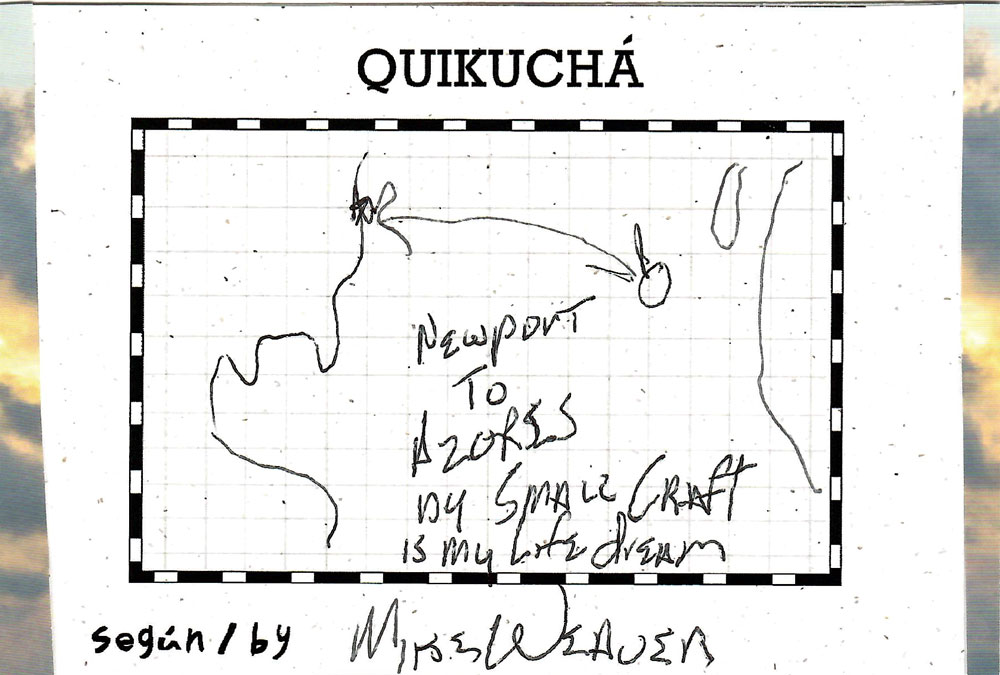 QUIKUCHÁ
Newport
To
AZORES
by Small Craft
is my Life dream
según / by Mike Weaver